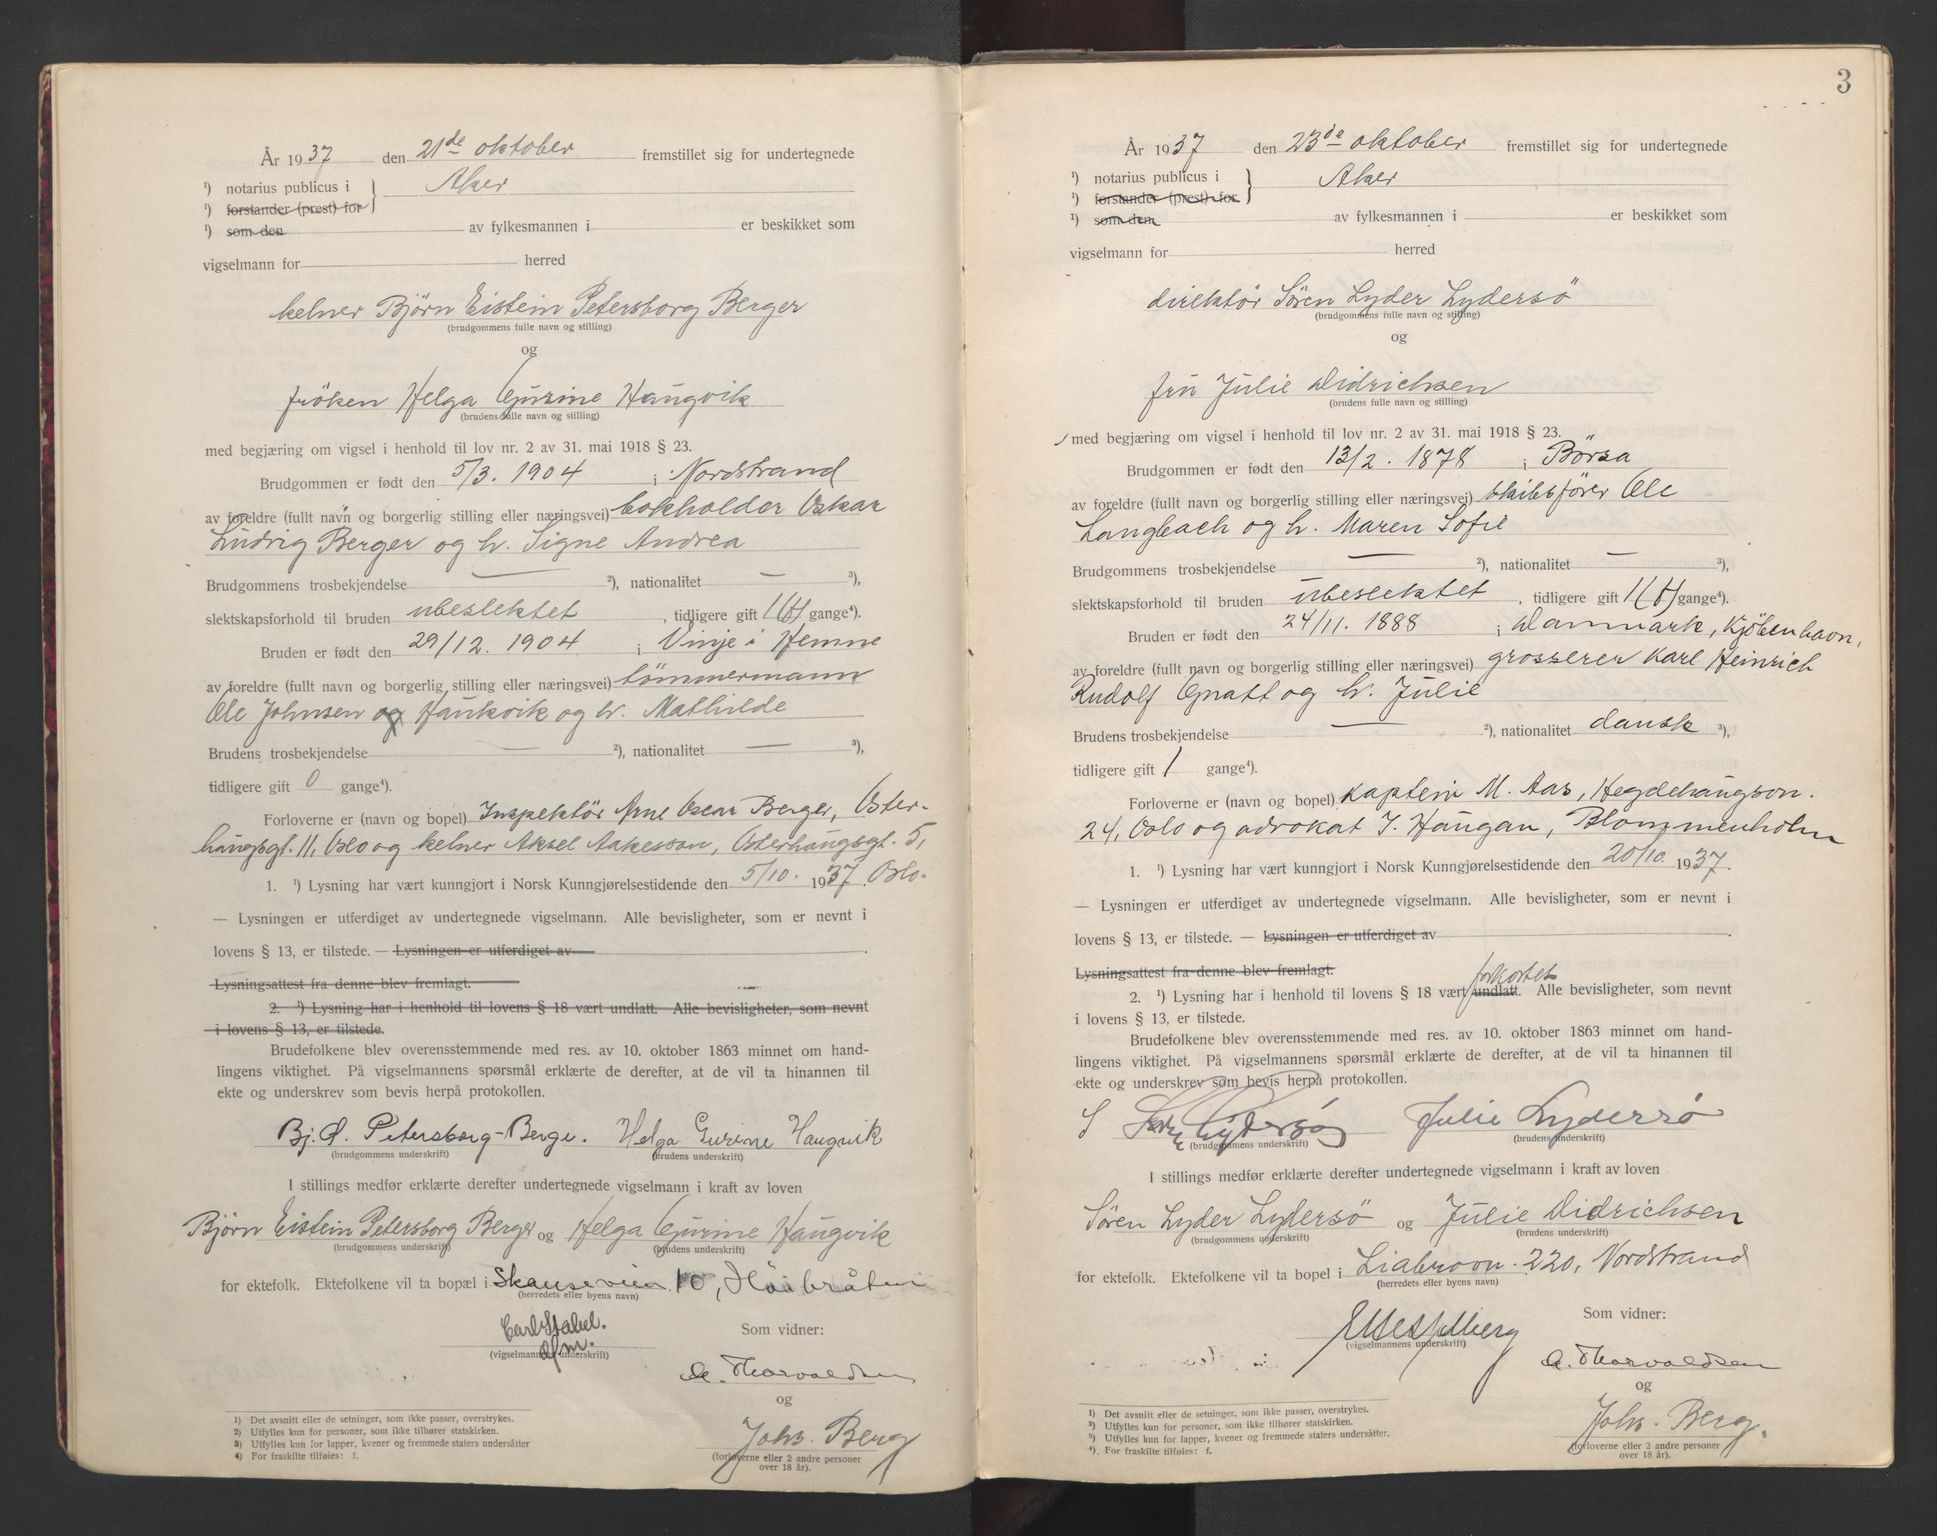 År 1937 den 21de oktober fremstillet sig for undertegnede
1) notarius publicus i Aker
1) forstander (prest) for
1) som den av fylkesmannen i er beskikket som
vigselmann for herred
kelner Björn Eistein Petersborg Berger
(brudgommens fulle navn og stilling)
og
fröken Helga Gurine Haugvik
(brudens fulle navn og stilling)
med begjæring om vigsel i henhold til lov nr. 2 av 31. mai 1918 § 23.
Brudgommen er født den 5/3. 1904 i Nordstrand
av foreldre (fullt navn og borgerlig stilling eller næringsvei) bokholder Oskar
Ludvig Berger og h. Signe Andrea
Brudgommens trosbekjendelse — 2), nationalitet — 3),
slektskapsforhold til bruden ubeslektet, tidligere gift 1(f) gange4).
Bruden er født den 29/12. 1904 i Vinje i Hemne
av foreldre (fullt navn og borgerlig stilling eller næringsvei) tömmermann
Ole Johnsen og Haukvik og h. Mathilde
Brudens trosbekjendelse — 2), nationalitet — 3),
tidligere gift 0 gange4).
Forloverne er (navn og bopel) Inspektör Arne Oscar Berger, Oster-
haugsgt. 11, Oslo og kelner Aksel Aakesson, Osterhaugsgt. 5,
1. 1) Lysning har vært kunngjort i Norsk Kunngjørelsestidende den 5/10. 1937. Oslo.
— Lysningen er utferdiget av undertegnede vigselmann. Alle bevisligheter, som er nevnt i
lovens § 13, er tilstede. — Lysningen er utferdiget av
Lysningsattest fra denne blev fremlagt.
2. 1) Lysning har i henhold til lovens § 18 vært undlatt. Alle bevisligheter, som er nevnt
i lovens § 13, er tilstede.
Brudefolkene blev overensstemmende med res. av 10. oktober 1863 minnet om hand-
lingens viktighet. På vigselmannens spørsmål erklærte de derefter, at de vil ta hinannen til
ekte og underskrev som bevis herpå protokollen.
Bj. Petersborg-Berger. Helga Gurine Haugvik
(brudgommens underskrift) (brudens underskrift)
I stillings medfør erklærte derefter undertegnede vigselmann i kraft av loven
Björn Eistein Petersborg Berger og Helga Gurine Haugvik
(brudgommens underskrift) (brudens underskrift)
for ektefolk. Ektefolkene vil ta bopæl i Skausevien 10, Höibråten
(herredets eller byens navn)
Carl Stabel.
Som vidner:
(vigselmannens underskrift)
A. Thorvaldsen
og
Johs. Berg
(forloverne eller 2 andre personer
over 18 år).
1) Det avsnitt eller de setninger, som ikke passer, overstrykes.
2) Utfylles kun for personer, som ikke tilhører statskirken.
3) Utfylles kun for lapper, kvener og fremmede staters undersåtter
4) For fraskilte tilføies: f.
3
År 1937 den 23de oktober fremstillet sig for undertegnede
1) notarius publicus i Aker
1) forstander (prest) for
1) som den av fylkesmannen i er beskikket som
vigselmann for herred
direktör Sören Lyder Lydersö
(brudgommens fulle navn og stilling)
og
fru Julie Didrichsen
(brudens fulle navn og stilling)
med begjæring om vigsel i henhold til lov nr. 2 av 31. mai 1918 § 23.
Brudgommen er født den 13/2. 1878 i Börsa
av foreldre (fullt navn og borgerlig stilling eller næringsvei) skibsfører Ole
Langbach og h. Maren Sofie
Brudgommens trosbekjendelse — 2), nationalitet — 3),
slektskapsforhold til bruden ubeslektet, tidligere gift 1(f) gange4).
Bruden er født den 24/11. 1888 i Danmark, Kjöbenhavn,
av foreldre (fullt navn og borgerlig stilling eller næringsvei) grosserer Karl Heinrich
Rudolf Gnatt og h. Julie
Brudens trosbekjendelse — 2), nationalitet dansk 3),
tidligere gift 1 gange4).
Forloverne er (navn og bopel) kaptein M. Aas, Hegdehaugson.
24, Oslo og advokat J. Haugan, Blommenholm
1. 1) Lysning har vært kunngjort i Norsk Kunngjørelsestidende den 20/10. 1937.
— Lysningen er utferdiget av undertegnede vigselmann. Alle bevisligheter, som er nevnt i
lovens § 13, er tilstede. — Lysningen er utferdiget av
Lysningsattest fra denne blev fremlagt.
forkortet
2. 1) Lysning har i henhold til lovens § 18 vært undlatt. Alle bevisligheter, som er nevnt
i lovens § 13, er tilstede.
Brudefolkene blev overensstemmende med res. av 10. oktober 1863 minnet om hand-
lingens viktighet. På vigselmannens spørsmål erklærte de derefter, at de vil ta hinannen til
ekte og underskrev som bevis herpå protokollen.
S Lydersø Julie Lydersø
(brudgommens underskrift) (brudens underskrift)
I stillings medfør erklærte derefter undertegnede vigselmann i kraft av loven
Sören Lyder Lydersö og Julie Didrichsen
(brudgommens underskrift) (brudens underskrift)
for ektefolk. Ektefolkene vil ta bopel i Liabrovn. 220, Nordstrand
(herredets eller byens navn)
Som vidner:
(vigselmannens underskrift)
A. Thorvaldsen
og
Johs. Berg.
(forloverne eller 2 andre personer
over 18 år).
1) Det avsnitt eller de setninger, som ikke passer, overstrykes.
2) Utfylles kun for personer, som ikke tilhører statskirken.
3) Utfylles kun for lapper, kvener og fremmede staters undersåtter.
4) For fraskilte tilføies: f.